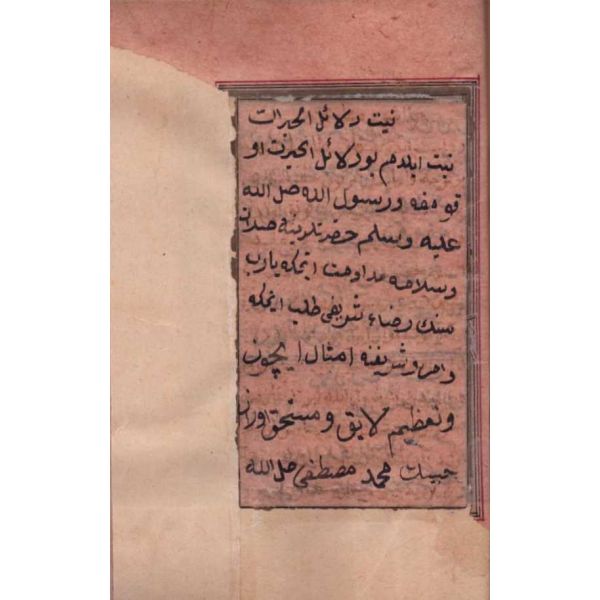 نيت دلائل الخيرات
نيت ايلدم بو دلائل الخيرت او
قومغه و رسول الله صل الله
عليه وسلم حضرتلرينه صلات
وسلامه مداومت ايتمكه يارب
سنك رضاء شريفى طلب ايتمكه
وامر شريفنه امتثال ايچون
وتعظيم لايق ومستحق اوران
حبيبك محمد مصطفى صل الله